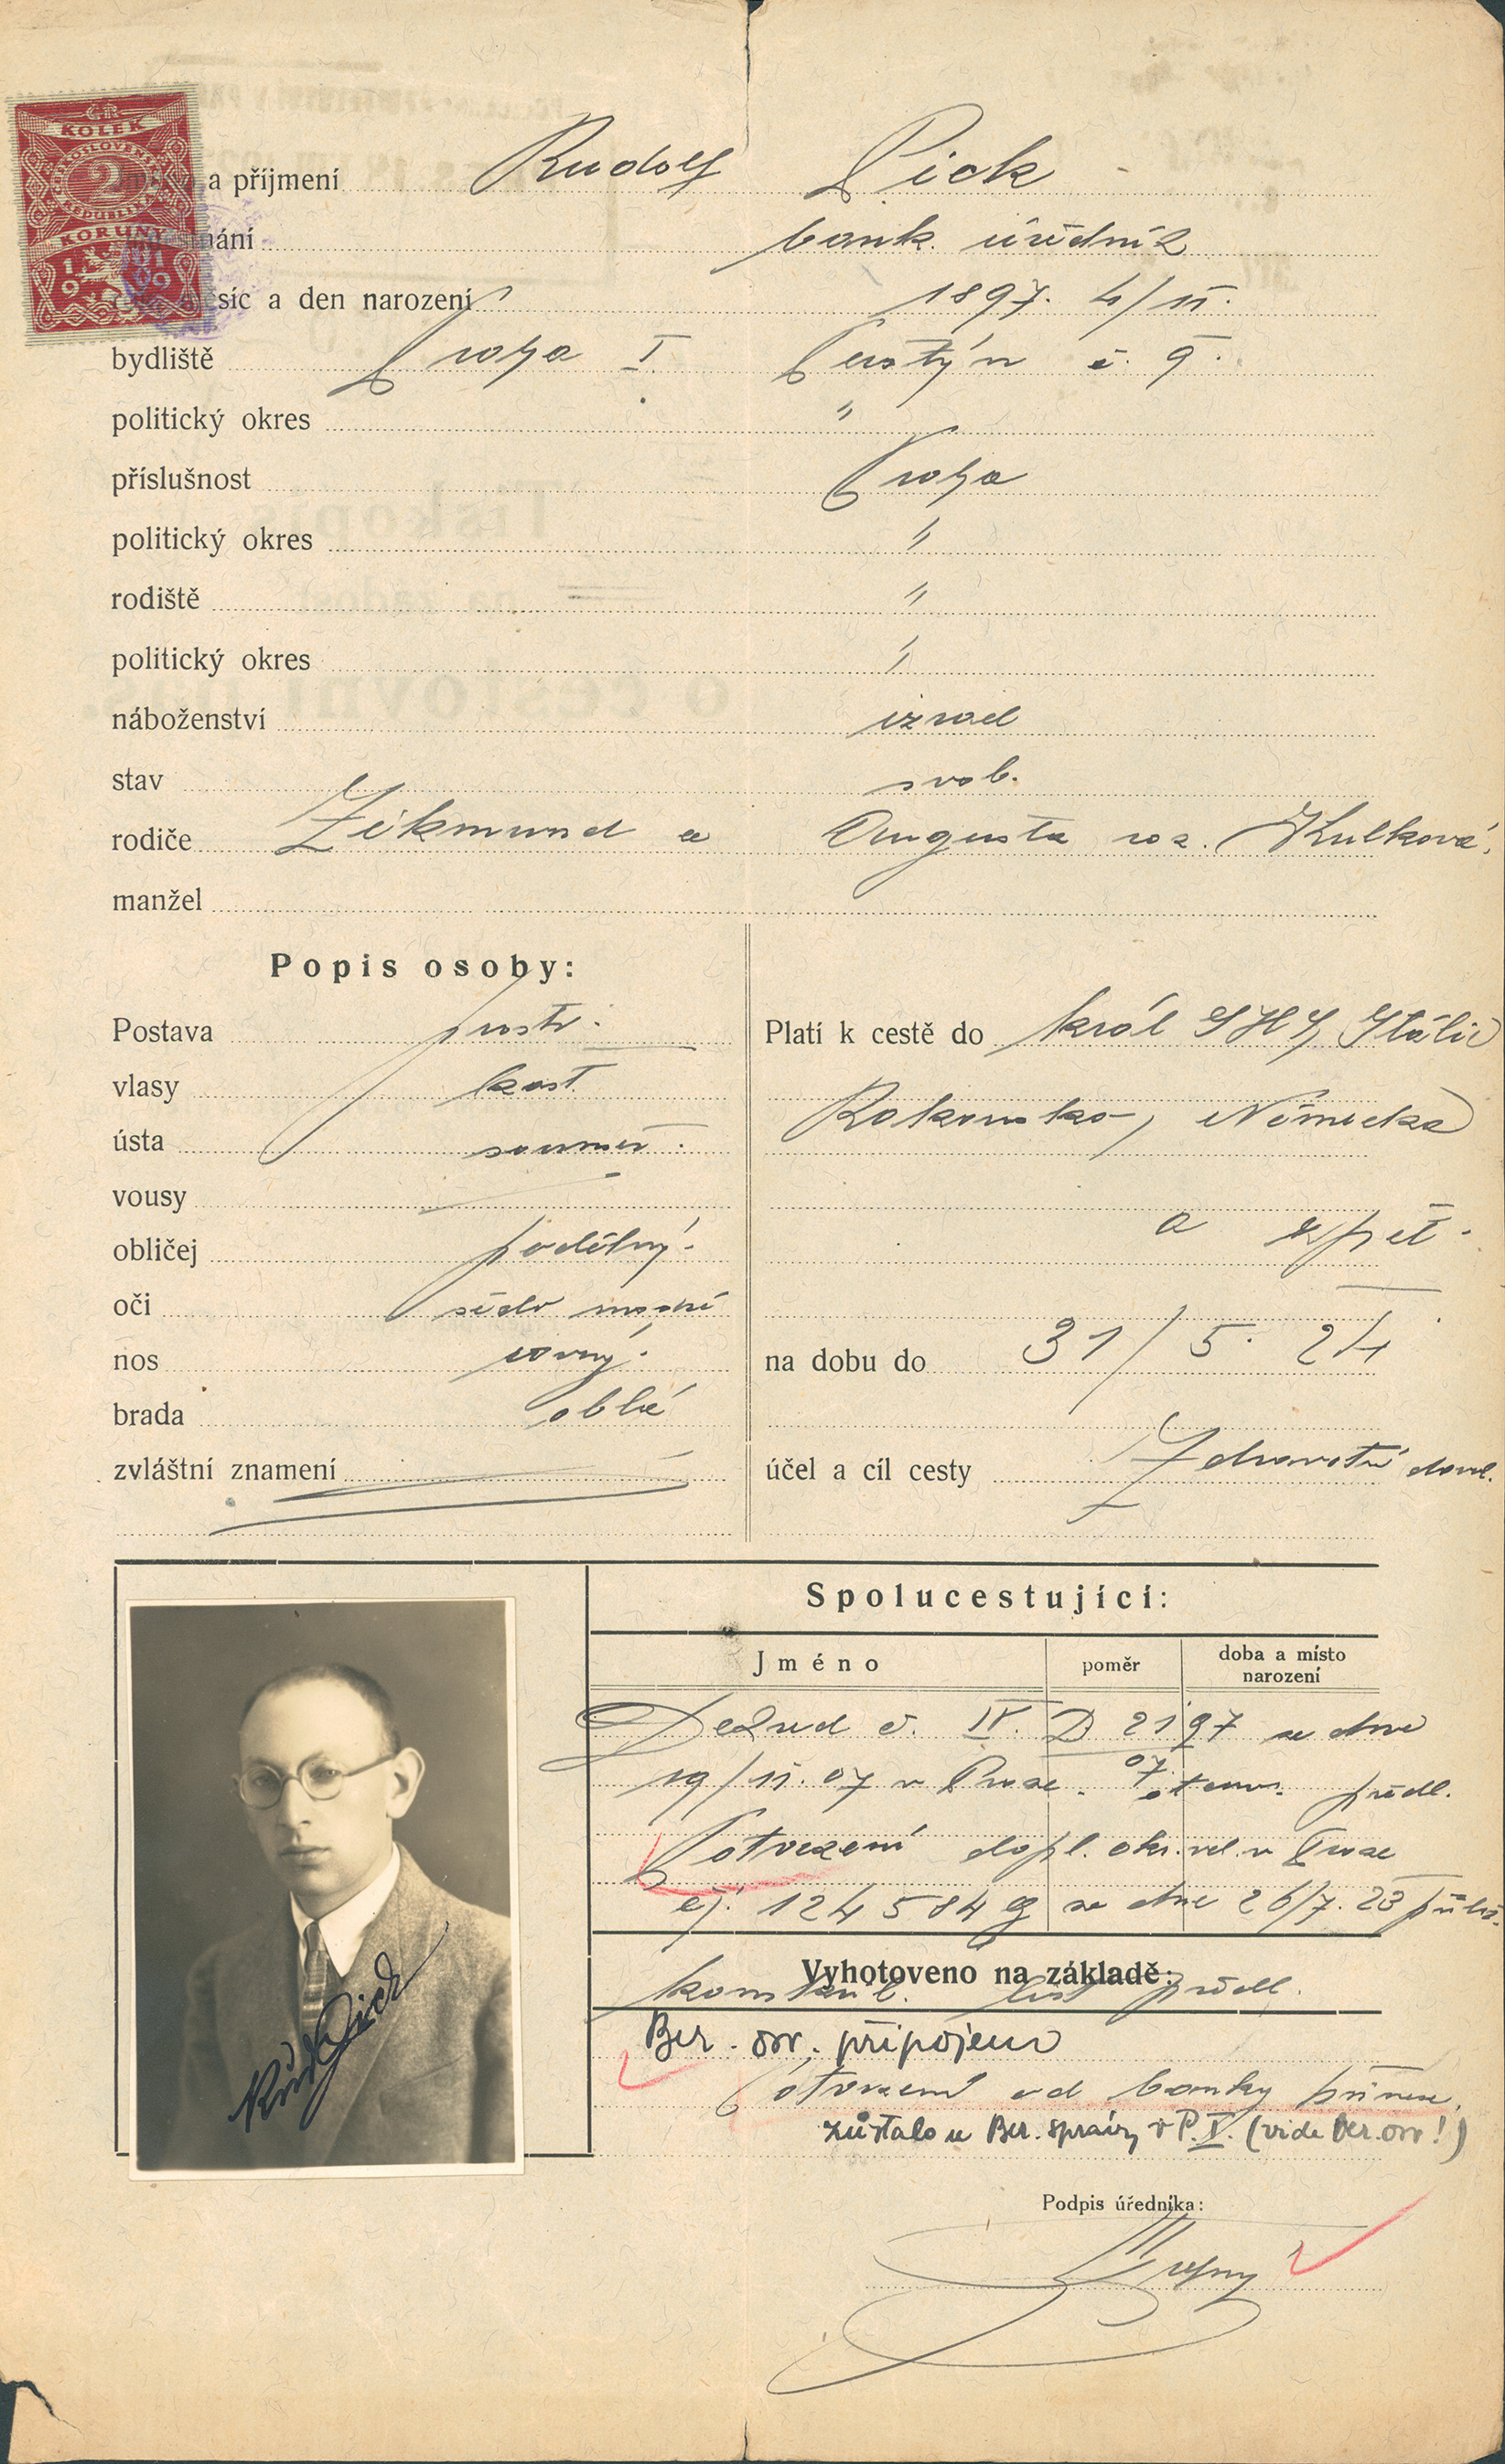 Č.R.
KOLEK
ČESKOSLOVENSKÁ
2
REPUBLIKA
KORUNY
1919
a příjmení Rudolf Pick
bank. úředník
síc a den narození 1897. 4/11.
bydliště Praha I. Perštýn č. 9.
politický okres "
příslušnost Praha
politický okres "
rodiště "
politický okres "
náboženství izrael
stav svob.
rodiče Zikmund a Augusta roz. Kulková.
manžel
Popis osoby:
Postava prostr.
vlasy kašt.
ústa souměr.
vousy
obličej podélný.
oči šedo modré
nos rovný.
brada oblá
zvláštní znamení
Platí k cestě do král SHS, Itálie
Rakousko, Německa
a zpět.
na dobu do 31/5. 24
účel a cíl cesty Zdravotní dovol.
Spolucestující:
Jméno poměr doba a místo narození
č. IV. D 2197 ze dne 07
19/11. 07 v Praze. předl.
Potvrzení dopl. okr. vel. v Praze
čj. 124584 ze dne 26/7. 23
Vyhotoveno na základě:
list předl.
Ber. ov. připojeno
Potvrzení od banky
zůstalo u Ber. správy v P. I. (vide Ber. ov!)
Rud Pick
Podpis úředníka: